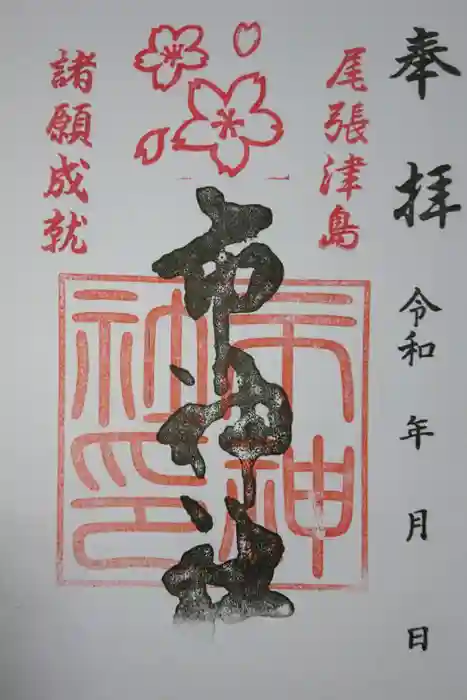 奉拝 令和 年 月 日
尾張津島
市神社
市神
社印
諸願成就